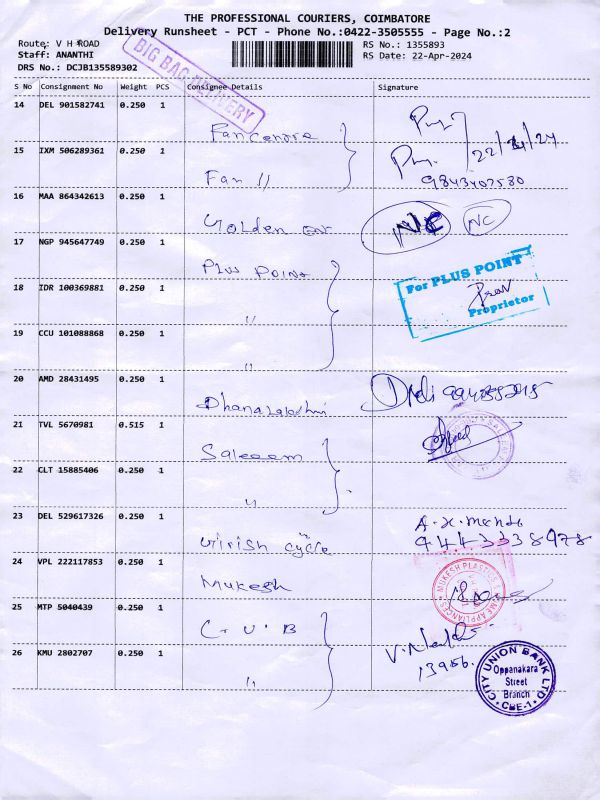 THE PROFESSIONAL COURIERS, COIMBATORE
Delivery Runsheet - PCT - Phone No.:0422-3505555 - Page No.:2
Route: V H ROAD
RS No.: 1355893
Staff: ANANTHI
RS Date: 22-Apr-2024
DRS No.: DCJB135589302
BIG BAG DELIVERY
S No Consignment No Weight PCS Consignee Details Signature
14 DEL 901582741 0.250 1
Fan Centre
22/4/24
15 IXM 506289361 0.250 1
Fan 11
9843407580
16 MAA 864342613 0.250 1
Golden
NC NC
17 NGP 945647749 0.250 1
Plus Point
18 IDR 100369881 0.250 1
"
For PLUS POINT
Proprietor
19 CCU 101088868 0.250 1
"
20 AMD 28431495 0.250 1
Dhanalakshmi
21 TVL 5670981 0.515 1
Saleeem
22 CLT 15885406 0.250 1
"
23 DEL 529617326 0.250 1
Girish cycle
9443338978
24 VPL 222117853 0.250 1
Mukesh
MUKESH PLASTICS & HOME APPLIANCES
25 MTP 5040439 0.250 1
C. U. B
26 KMU 2802707 0.250 1
"
13956.
CITY UNION BANK LTD
Oppanakara
Street
Branch
CBE-1